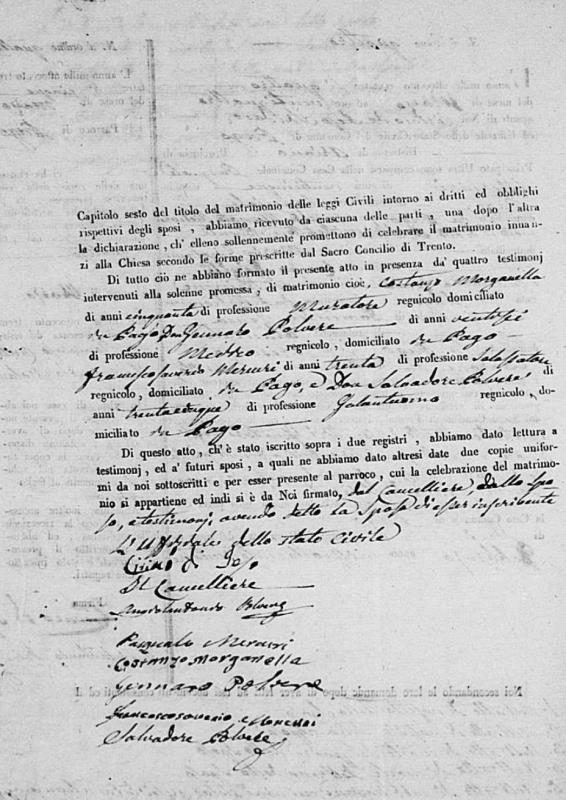 Capitolo sesto del titolo del matrimonio delle leggi Civili intorno ai dritti ed obblighi
rispettivi degli sposi, abbiamo ricevuto da ciascuna delle parti, una dopo l'altra
la dichiarazione, ch' elleno sollennemente promettono di celebrare il matrimonio innan-
zi alla Chiesa secondo le forme prescritte dal Sacro Concilio di Trento.
Di tutto ciò ne abbiamo formato il presente atto in presenza da' quattro testimonj
intervenuti alla solenne promessa, di matrimonio cioè, Costanzo Morganella
di anni cinquanta di professione Muratore regnicolo domiciliato
da Pago Don Gennaro Polvere di anni ventisei
di professione Medico regnicolo, domiciliato da Pago
Francesco Saverio Mercuri di anni trenta di professione Salassatore
regnicolo, domiciliato da Pago, e Don Salvadore Polvere di
anni trentacinque di professione Galantuomo regnicolo, do-
miciliato da Pago
Di questo atto, ch'è stato iscritto sopra i due registri, abbiamo dato lettura a
testimonj, ed a' futuri sposi, a quali ne abbiamo dato altresì date due copie unifor-
mi da noi sottoscritti e per esser presente al parroco, cui la celebrazione del matrimo-
nio si appartiene ed indi si è da Noi firmato, dal Cancelliere, dallo Spo-
so, e testimonj, avendo detto la sposa di esser inscribente
L'Uffiziale dello stato Civile
Il Cancelliere
Polvere
Pasquale Mercuri
Costanzo Morganella
Gennaro Polvere
Francesco Saverio Mercuri
Salvadore Polvere